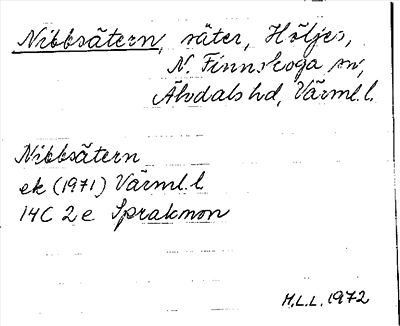 Nibbsätern, säter, Höljes,
N. Finnskoga sn,
Älvdals hd, Värml.l.
Nibbsätern
ek (1971) Värml.l
14C 2e Sprakmon
H.L.L. 1972